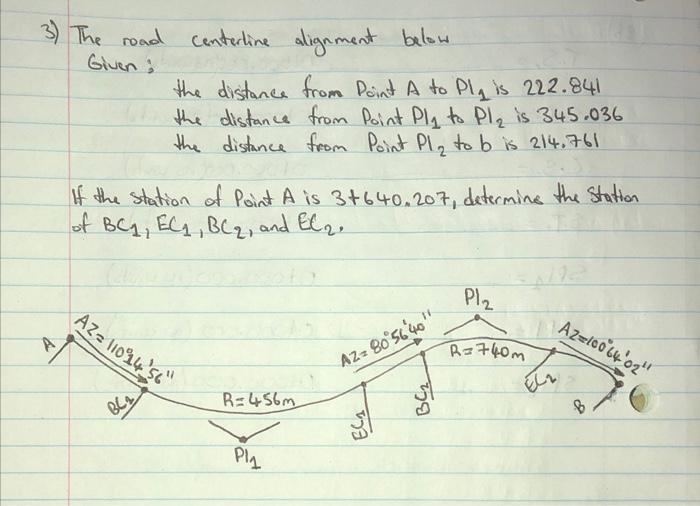 3) The road centerline alignment below
Given:
the distance from Point A to PI1 is 222.841
the distance from Point PI1 to PI2 is 345.036
the distance from Point PI2 to b is 214.761
If the station of Point A is 3+640.207, determine the station
of BC1, EC1, BC2, and EC2.
PI2
A
AZ=110°14'56"
AZ=80°56'40"
AZ=100°64'02"
R=740m
BC2
R=456m
EC1
BC2
EC2
B
PI1